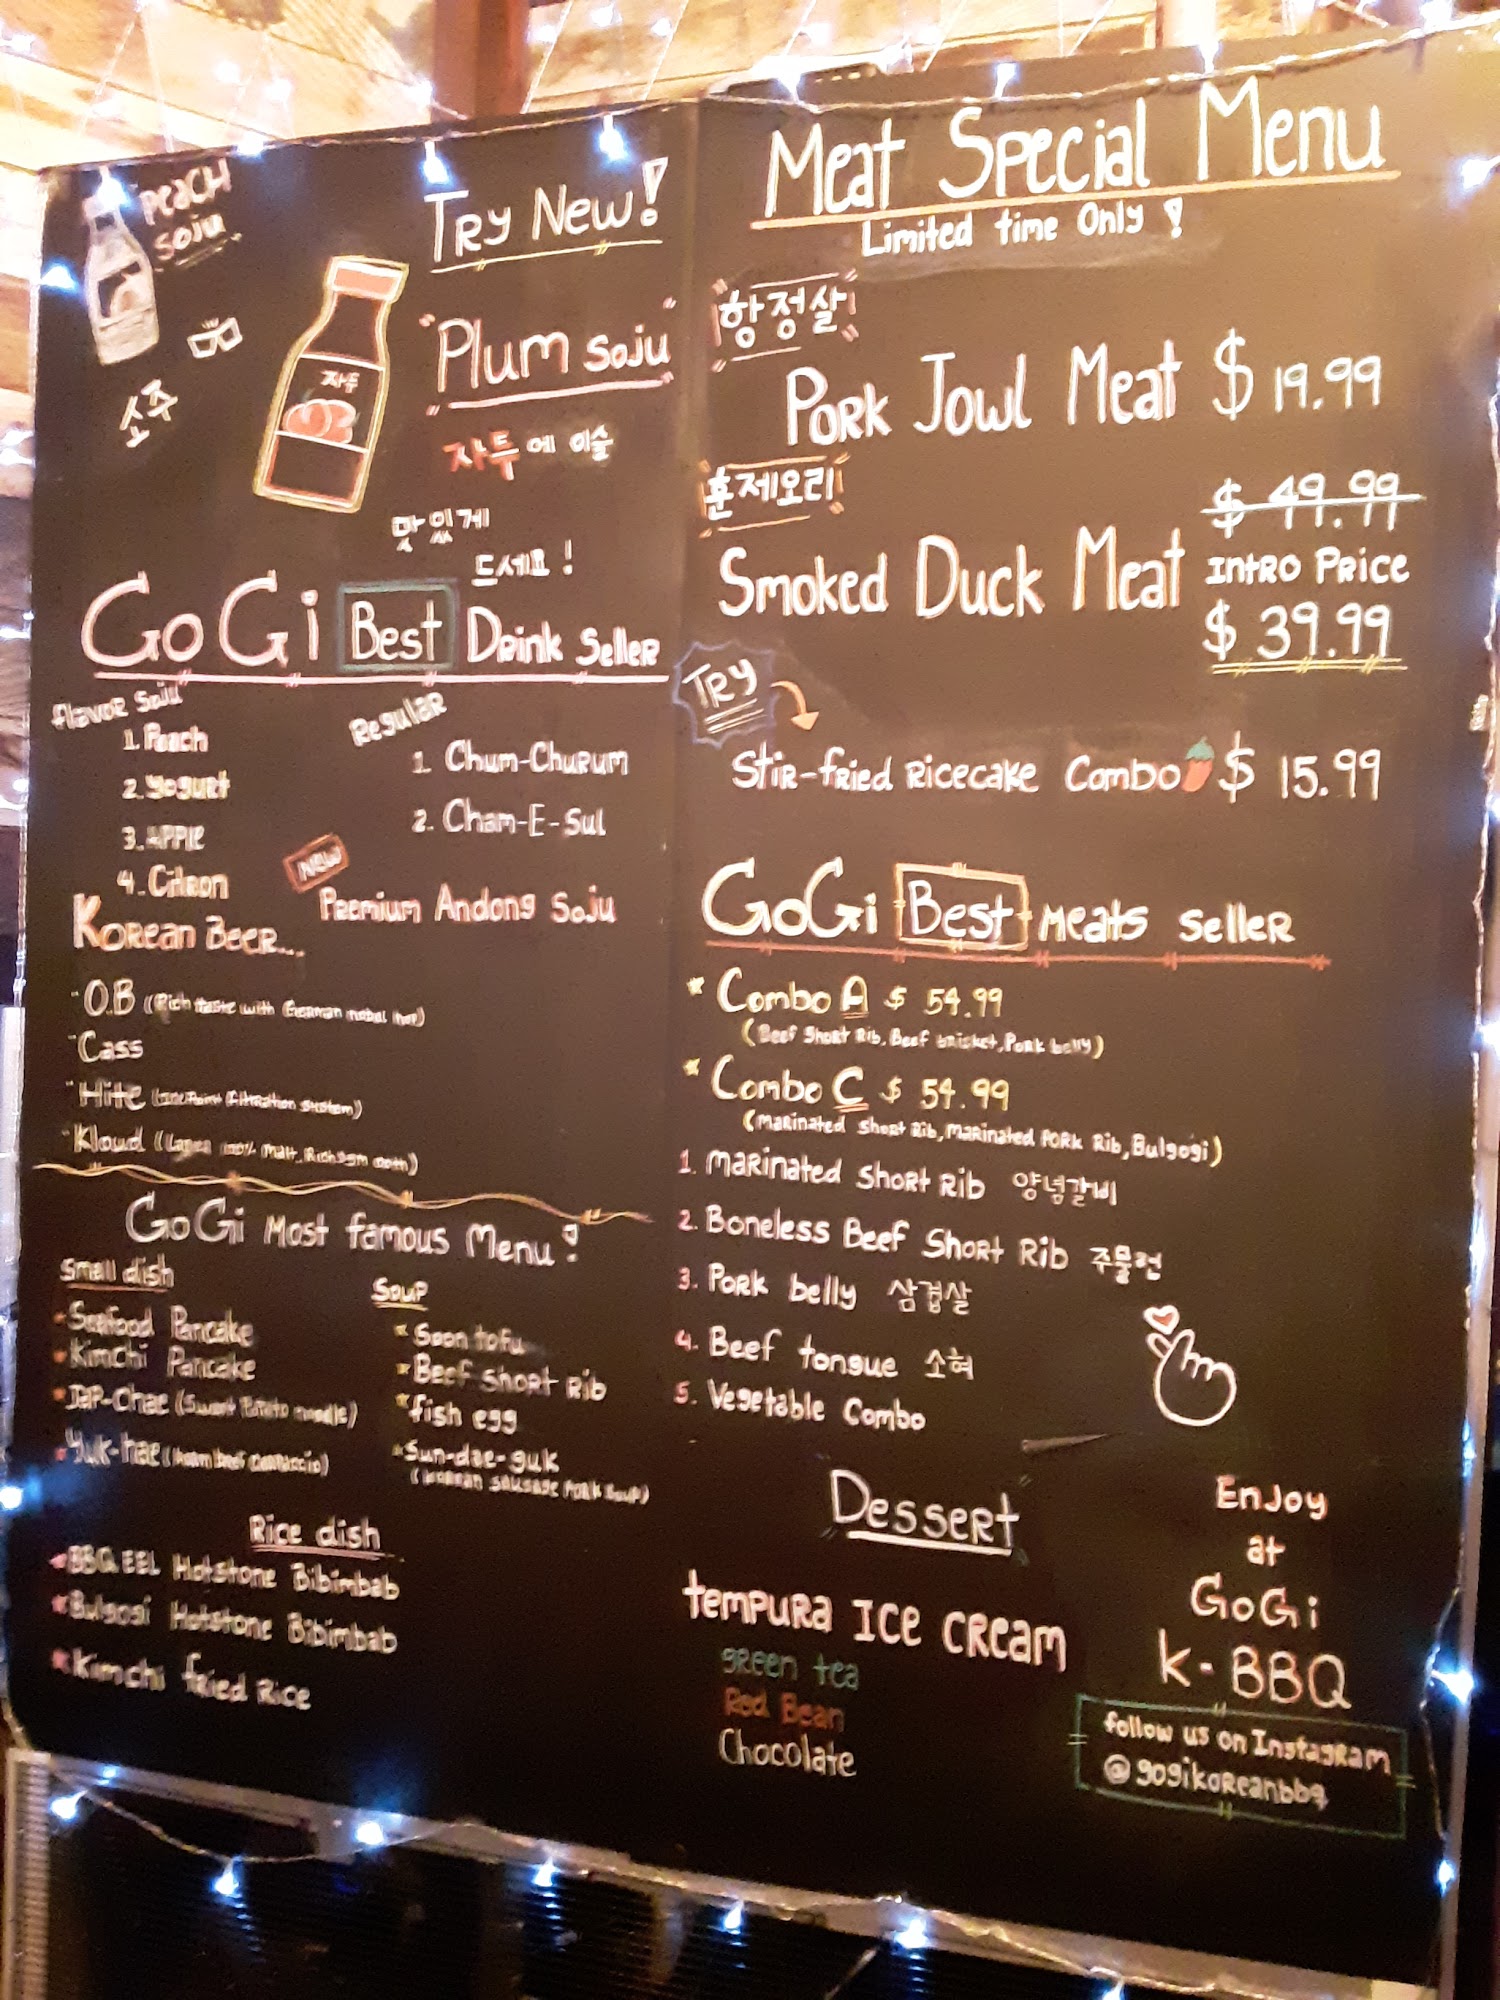 Peach
Soju
소주
Try New!
"Plum Soju"
자두
자두에 이슬
맛있게
드세요!
GoGi Best Drink Seller
Flavor Soju
1. Peach
2. Yogurt
3. Apple
4. Citron
Regular
1. Chum-Churum
2. Cham-E-Sul
New
Premium Andong Soju
Korean Beer...
O.B (Rich taste with German nobel hop)
Cass
Hite (Ice Point Filtration system)
Kloud (Lager 100% Malt, Rich)
GoGi Most famous Menu!
Small dish
Seafood Pancake
Kimchi Pancake
Jap-Chae (Sweet Potato noodle)
Yuk-hae (beef carpaccio)
Soup
Soon tofu
Beef Short Rib
fish egg
Sun-dae-guk
(Korean Sausage Pork Soup)
Rice dish
BBQ EEL Hotstone Bibimbab
Bulgogi Hotstone Bibimbab
Kimchi fried Rice
Meat Special Menu
Limited time Only!
항정살
Pork Jowl Meat $19.99
훈제오리
Smoked Duck Meat
$ 49.99
Intro Price
$ 39.99
Try
Stir-fried Ricecake Combo $ 15.99
GoGi Best Meats Seller
Combo A $ 54.99
(Beef Short Rib, Beef brisket, Pork belly)
Combo C $ 54.99
(Marinated Short Rib, Marinated Pork Rib, Bulgogi)
1. Marinated Short Rib 양념갈비
2. Boneless Beef Short Rib 주물럭
3. Pork belly 삼겹살
4. Beef tongue 소혀
5. Vegetable Combo
Dessert
tempura Ice Cream
green tea
Red Bean
Chocolate
Enjoy
at
GoGi
K-BBQ
follow us on Instagram
@gogikoreanbbq